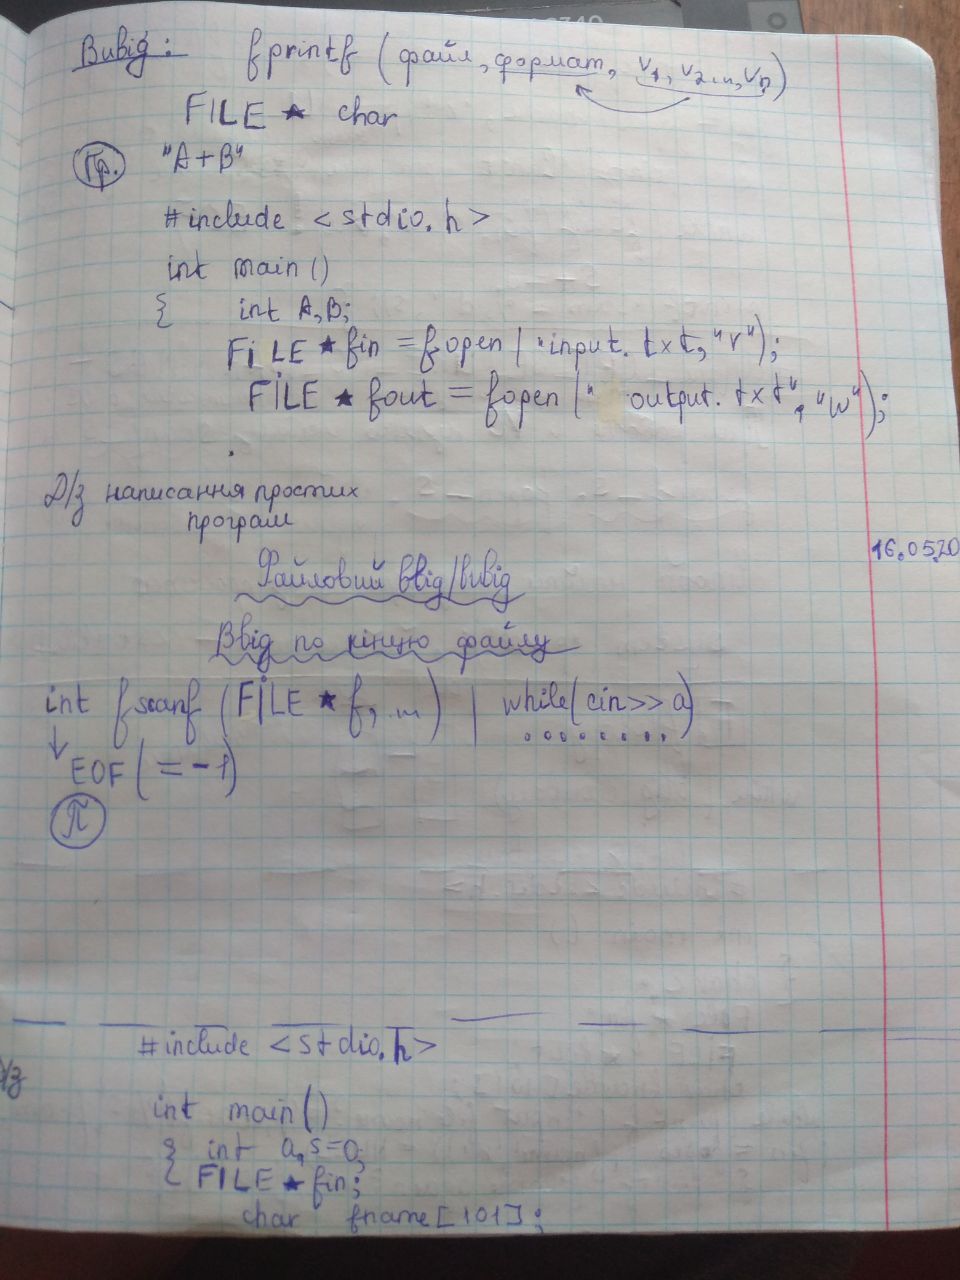 Вивід: fprintf (файл, формат, v1, v2...,vn)
FILE * char
Пр. "A+B"
#include <stdio.h>
int main()
{ int A,B;
FiLE * fin = fopen ("input.txt, "r");
FiLE * fout = fopen (" output.txt", "w");
Д/з написання простих
програм
16.05.20
Файловий ввід/вивід
Ввід по кінцю файлу
int fscanf (FiLE * f, ...) | while(cin>>a)
↓ .........
EOF (= -1)
П
#include <stdio.h>
Д/з
int main()
{ int a,s=0;
FILE * fin;
char fname[101];